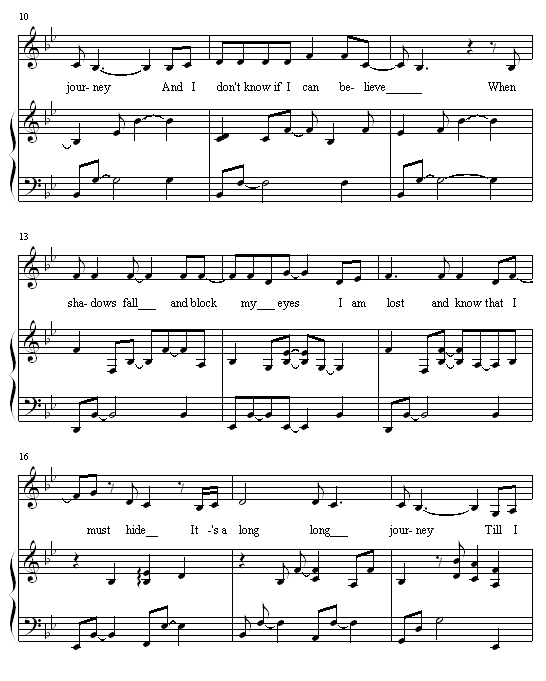 10
jour- ney And I don't know if I can be- lieve______ When
13
sha- dows fall___ and block my___ eyes I am lost and know that I
16
must hide__ It -'s a long long___ jour- ney Till I